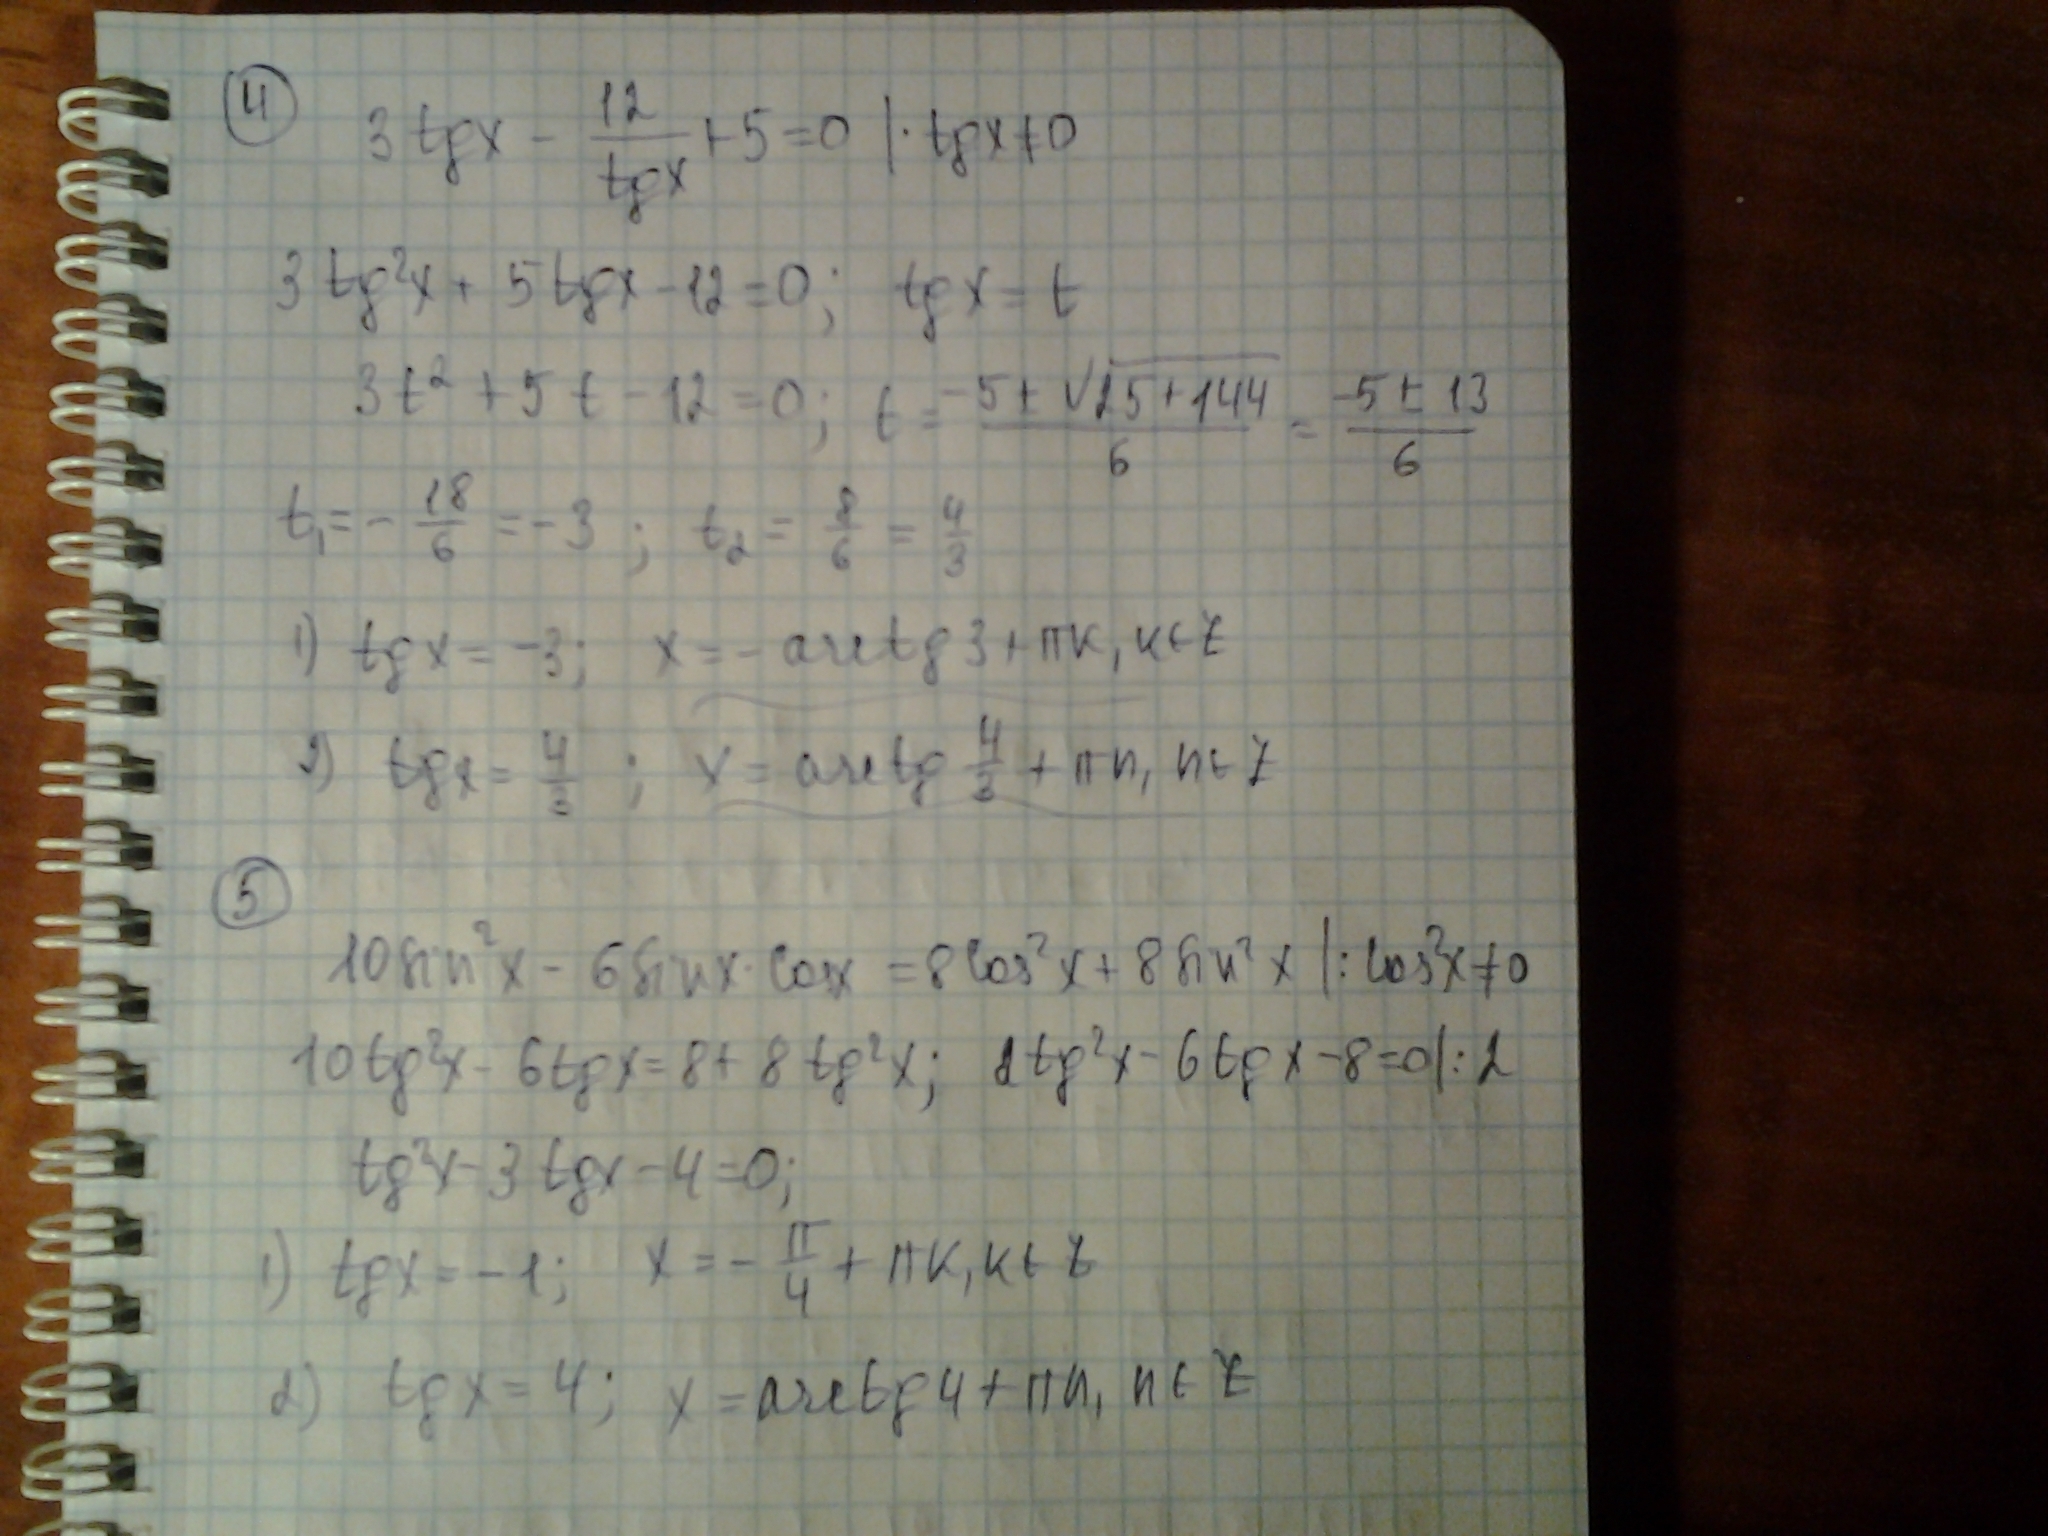 4
3tgx - 12/tgx + 5 = 0 | · tgx ≠ 0
3tg²x + 5tgx - 12 = 0; tgx = t
3t² + 5t - 12 = 0; t = (-5 ± √(25+144))/6 = (-5 ± 13)/6
t₁ = -18/6 = -3; t₂ = 8/6 = 4/3
1) tgx = -3; x = -arctg3 + πk, k∈Z
2) tgx = 4/3; x = arctg 4/3 + πn, n∈Z
5
10sin²x - 6sinx·cosx = 8cos²x + 8sin²x | : cos²x ≠ 0
10tg²x - 6tgx = 8 + 8tg²x; 2tg²x - 6tgx - 8 = 0 | : 2
tg²x - 3tgx - 4 = 0;
1) tgx = -1; x = -π/4 + πk, k∈Z
2) tgx = 4; x = arctg4 + πn, n∈Z